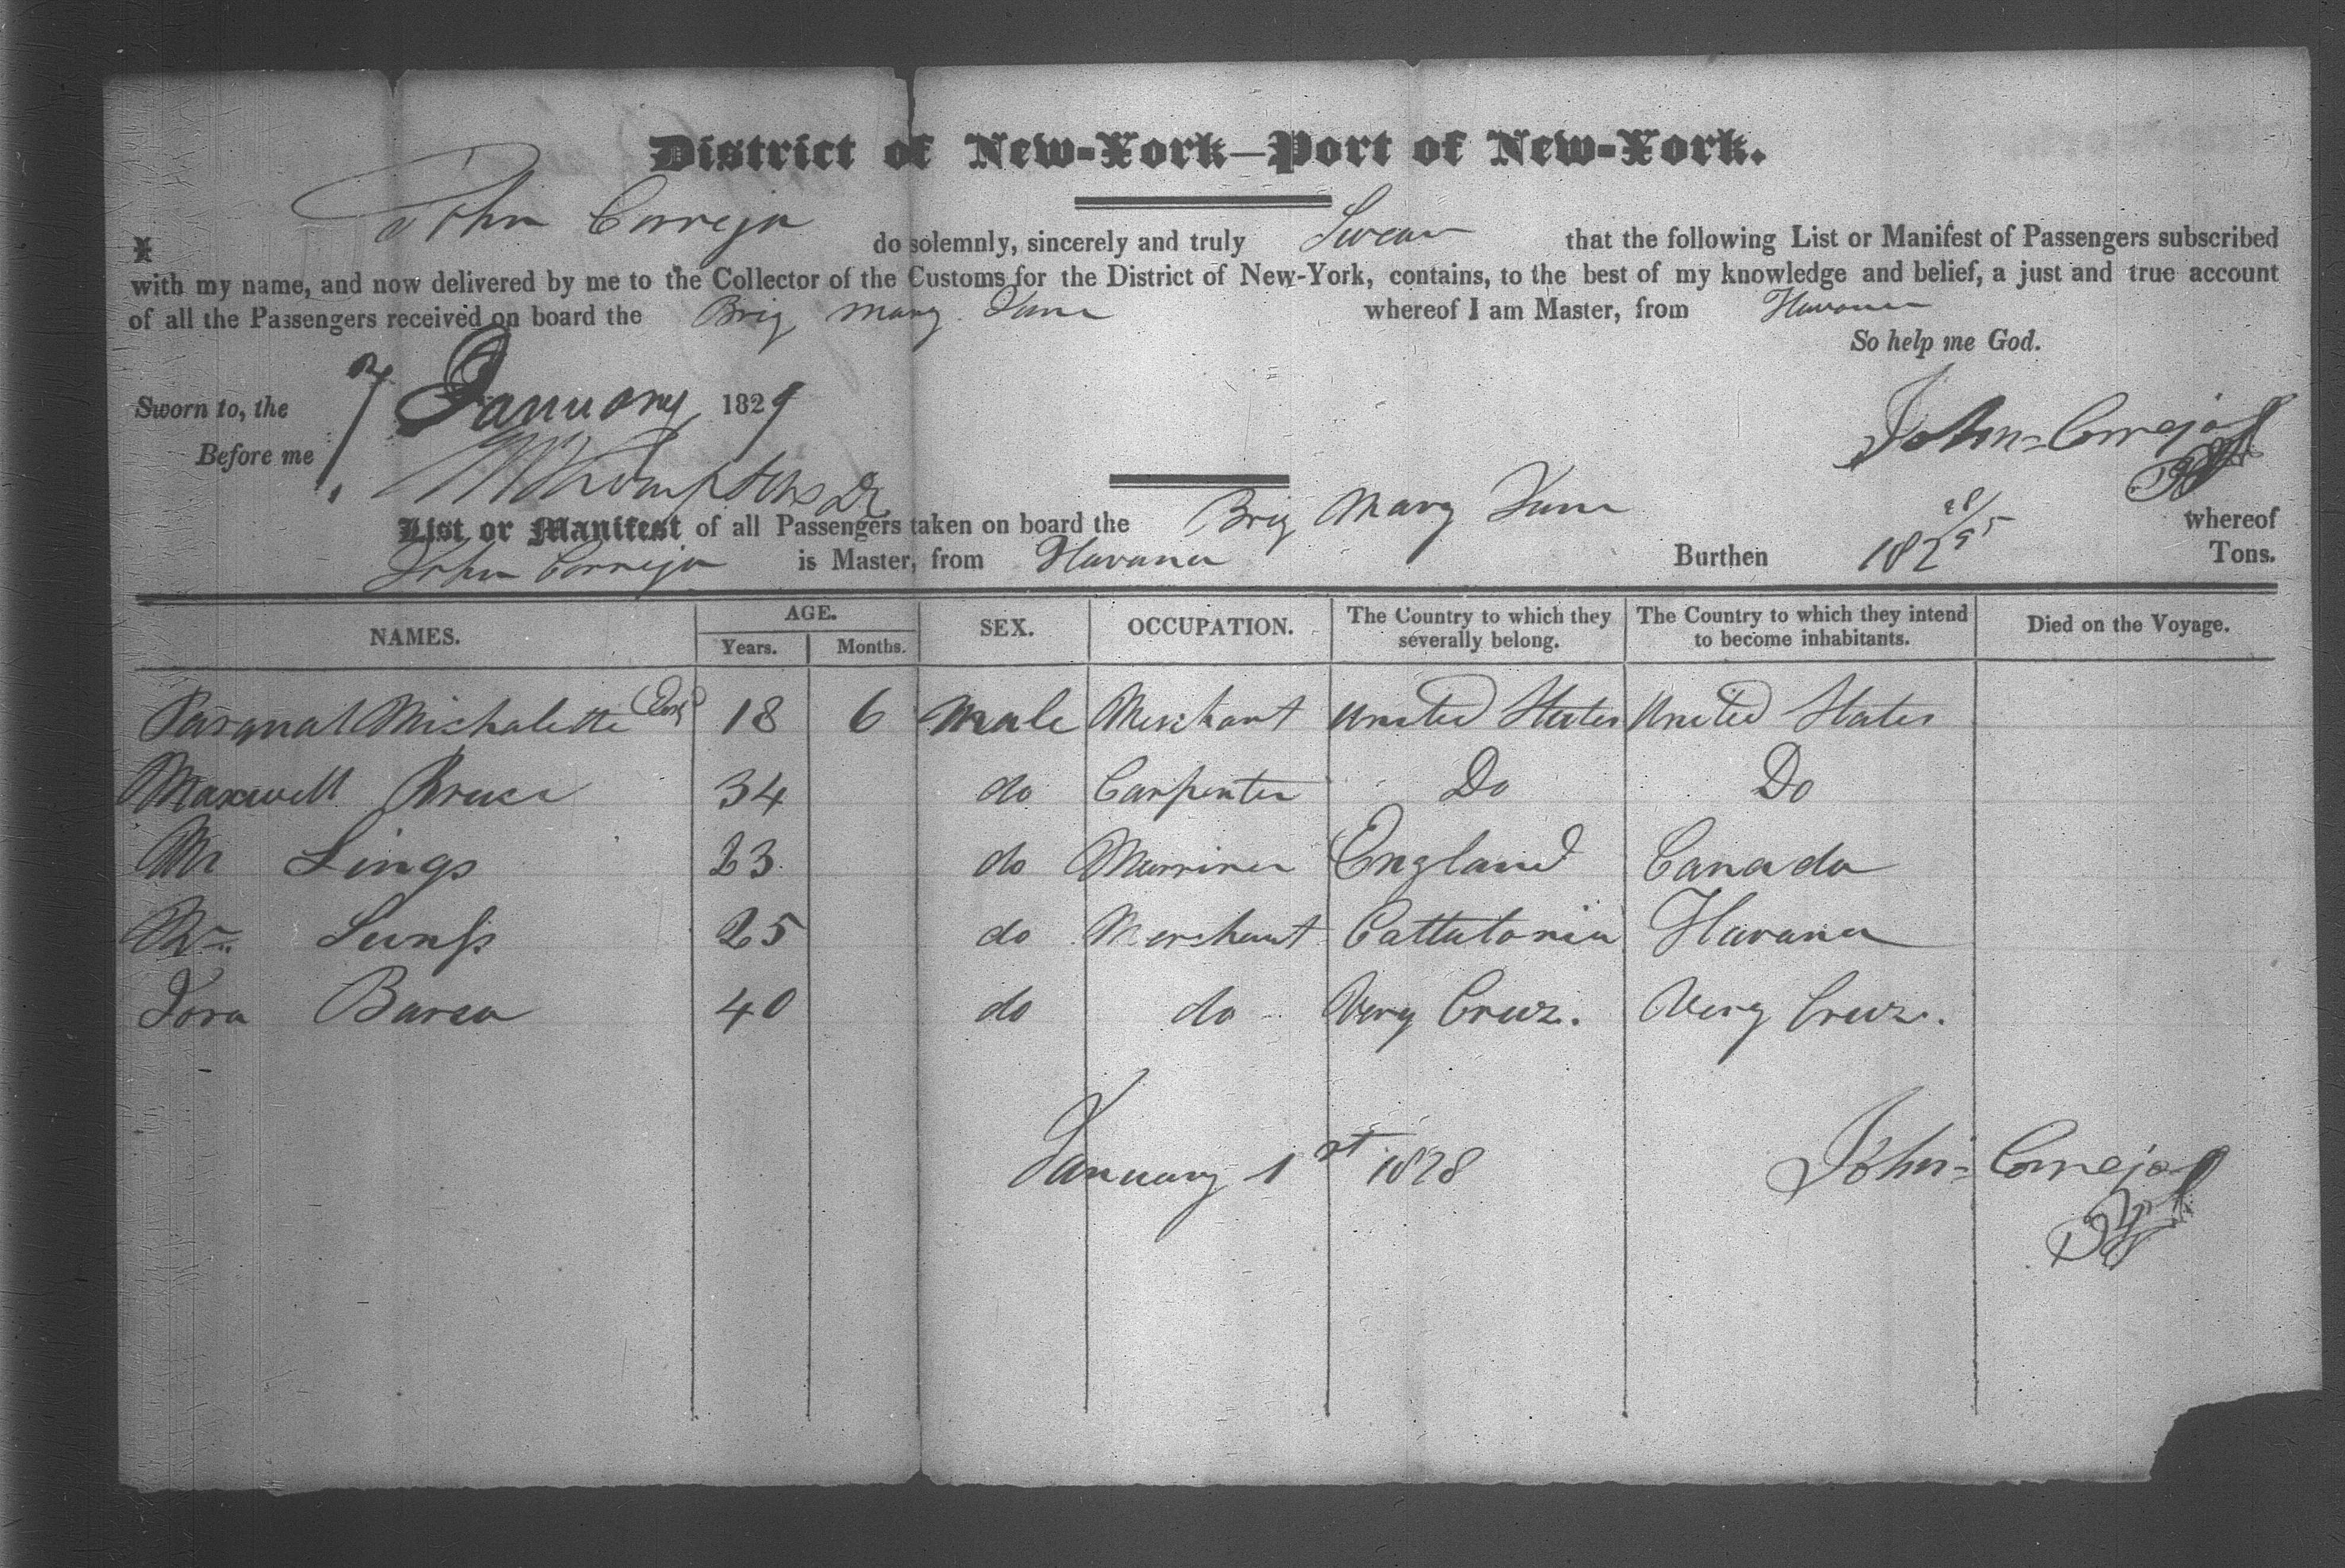 District of New-York—Port of New-York.
I John Correja do solemnly, sincerely and truly Swear that the following List or Manifest of Passengers subscribed
with my name, and now delivered by me to the Collector of the Customs for the District of New-York, contains, to the best of my knowledge and belief, a just and true account
of all the Passengers received on board the Brig Mary Jane whereof I am Master, from Havana
So help me God.
Sworn to, the 7 January 1829
Before me
John Correja
List or Manifest of all Passengers taken on board the Brig Mary Jane whereof
John Correja is Master, from Havana Burthen 182 28/95 Tons.
NAMES. AGE. Years. Months. SEX. OCCUPATION. The Country to which they severally belong. The Country to which they intend to become inhabitants. Died on the Voyage.
Pasqual Michalette 18 6 Male Merchant United States United States
Maxwell Bruce 34 do Carpenter Do Do
Mr Lings 23 do Marriner England Canada
Mr 25 do Merchant Cattatonia Havana
Barsa 40 do do Very Cruz. Very Cruz.
January 1st 1828 John Correja